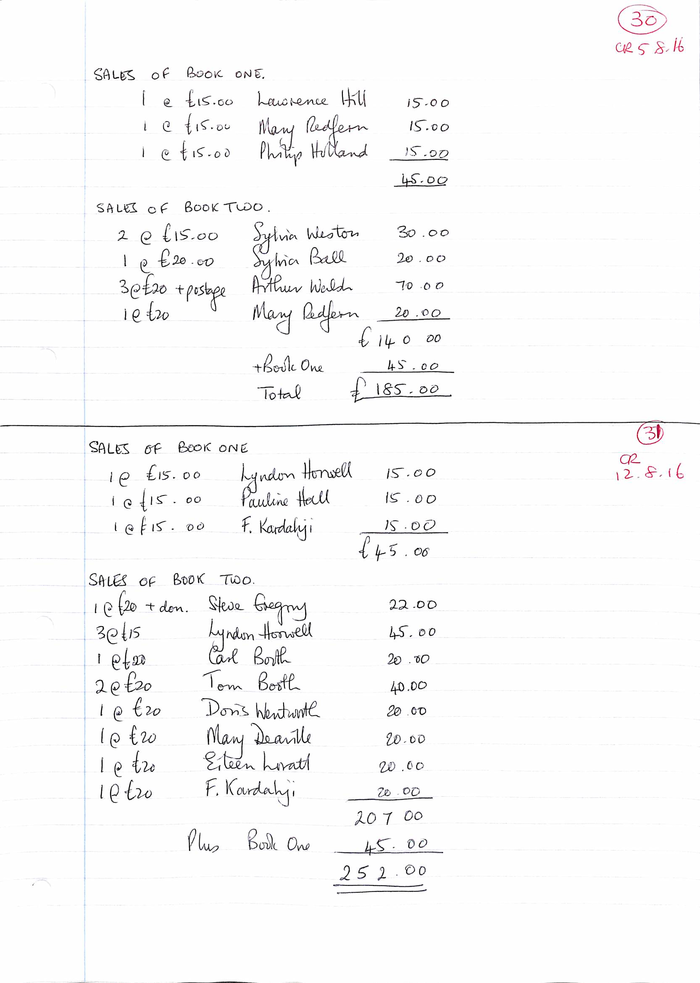 30
CR 5 8.16
SALES OF BOOK ONE.
1 @ £15.00 Lawrence Hill 15.00
1 @ £15.00 Mary Redfern 15.00
1 @ £15.00 Philip Holland 15.00
45.00
SALES OF BOOK TWO.
2 @ £15.00 Sylvia Weston 30.00
1 @ £20.00 Sylvia Ball 20.00
3@£20 + postage Arthur Walsh 70.00
1@£20 Mary Redfern 20.00
£ 140 00
+Book One 45.00
Total £ 185.00
31
CR
12.8.16
SALES OF BOOK ONE
1@ £15.00 Lyndon Horwell 15.00
1@£15.00 Pauline Hall 15.00
1@£15.00 F. Kardahji 15.00
£45.00
SALES OF BOOK TWO.
1@£20 + don. Steve Gregory 22.00
3@£15 Lyndon Horwell 45.00
1 @£20 Carl Booth 20.00
2@£20 Tom Booth 40.00
1 @ £20 Doris Wentworth 20.00
1@ £20 Mary Deaville 20.00
1 @ £20 Eileen 20.00
1@£20 F. Kardahji 20.00
207 00
Plus Book One 45.00
252.00